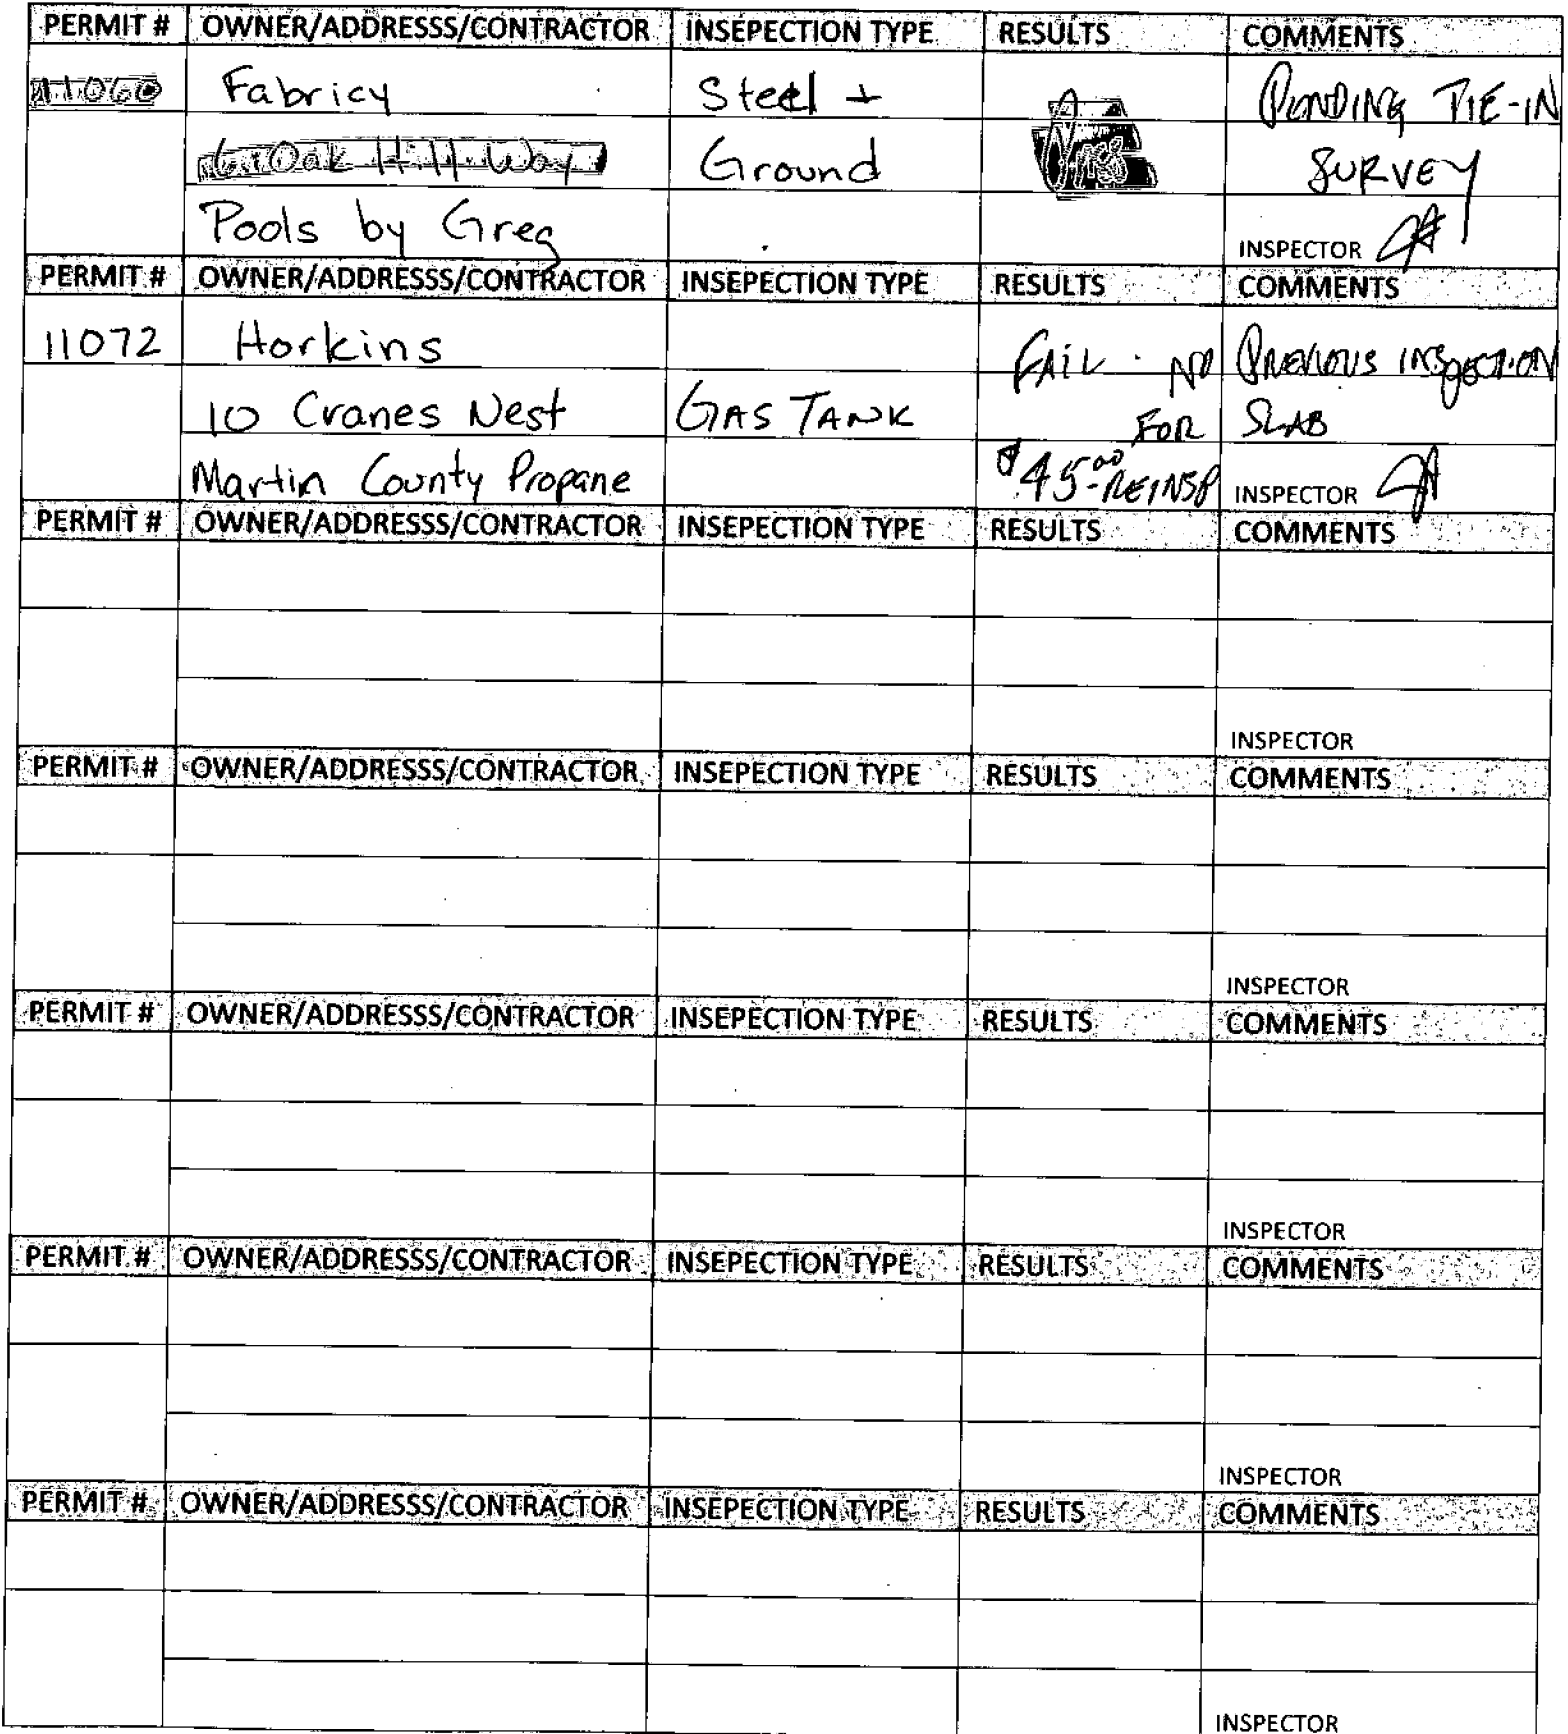 PERMIT # OWNER/ADDRESSS/CONTRACTOR INSEPECTION TYPE RESULTS COMMENTS
11060 Fabricy Steel + PENDING TIE-IN
6 Oak Hill Way Ground SURVEY
Pools by Greg INSPECTOR
PERMIT # OWNER/ADDRESSS/CONTRACTOR INSEPECTION TYPE RESULTS COMMENTS
11072 Horkins FAIL NO PREVIOUS INSPECTION
10 Cranes Nest GAS TANK FOR SLAB
Martin County Propane $45.00 REINSP INSPECTOR
PERMIT # OWNER/ADDRESSS/CONTRACTOR INSEPECTION TYPE RESULTS COMMENTS
INSPECTOR
PERMIT # OWNER/ADDRESSS/CONTRACTOR INSEPECTION TYPE RESULTS COMMENTS
INSPECTOR
PERMIT # OWNER/ADDRESSS/CONTRACTOR INSEPECTION TYPE RESULTS COMMENTS
INSPECTOR
PERMIT # OWNER/ADDRESSS/CONTRACTOR INSEPECTION TYPE RESULTS COMMENTS
INSPECTOR
PERMIT # OWNER/ADDRESSS/CONTRACTOR INSEPECTION TYPE RESULTS COMMENTS
INSPECTOR